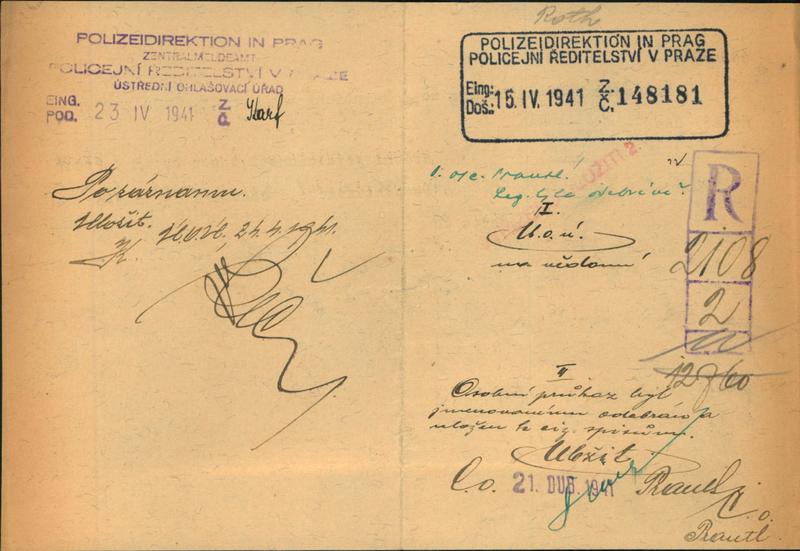 POLIZEIDIREKTION IN PRAG
ZENTRALMELDEAMT
POLICEJNÍ ŘEDITELSTVÍ V PRAZE
ÚSTŘEDNÍ OHLAŠOVACÍ ÚŘAD
EING.
POD. 23 IV 1941 Z. Č.
Po záznamu.
Uložit.
K. 24.4.1941.
Roth
POLIZEIDIREKTION IN PRAG
POLICEJNÍ ŘEDITELSTVÍ V PRAZE
Eing:
Doš.: 15. IV. 1941 Z. Č. 148181
Leg. byla odebrána?
I.
Ú.o.ú.
na vědomí
R
2108
2
II
Osobní průkaz byl
jmenovanému odebrán a
uložen k zig. spisům.
Uložit
C.o. 21. DUB. 1941 Prantl
Prantl.